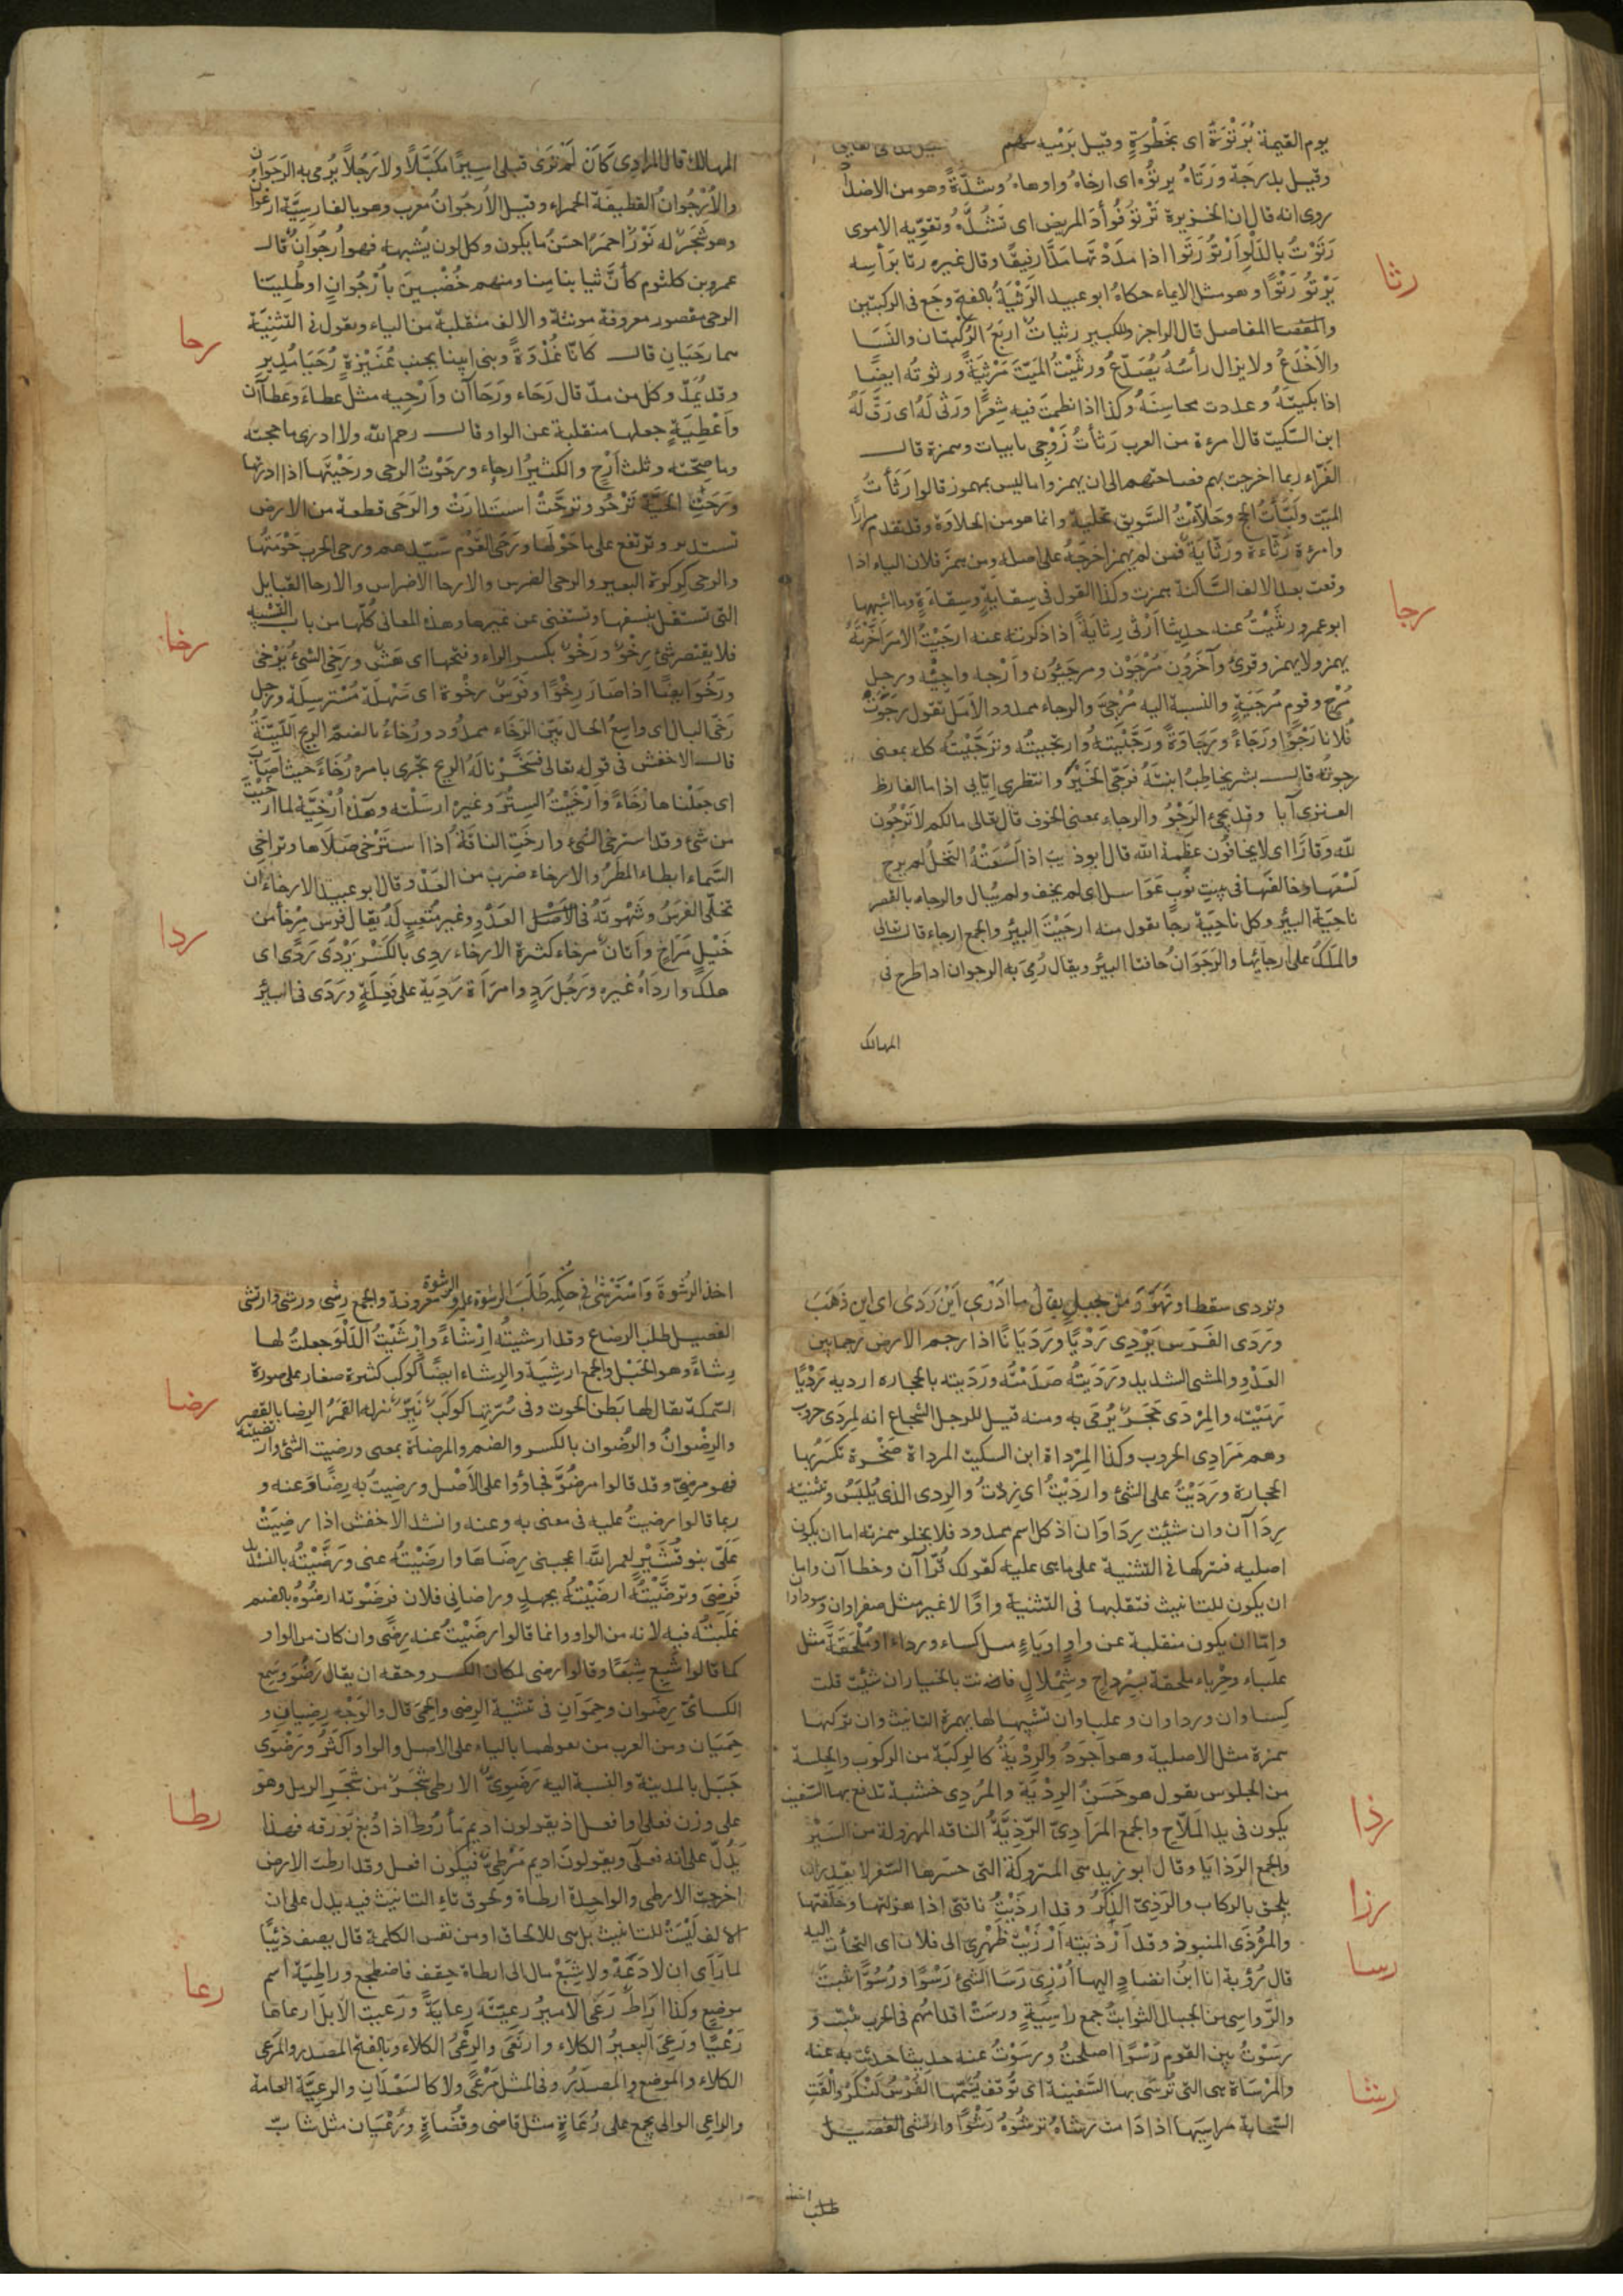 يوم القيمة بُرَتْوَةً اى بخَطْوَةٍ وقيل برَمْيه سهم
وقيل بدرجة ورَتَاهُ يرتوُه اى ارخاهُ واوهاهُ وشدّهُ وهو من الاضداد
روى انه قال ان الخزيرة تَرْتوُ فُوأدَ المريض اى تَشُدُّهُ وتقوّيه الاموى
رَتَوْتُ بالدَلْوِ اَرْتُو رَتْوًا اذا مَدَدْتَها مَدًّا رفيقًا وقال غيره رتا برأسه
رثا
يَرْتُو رَتْوًا وهو مثل الايماء حكاهُ ابو عبيد الرَثْيَةُ بالفتح وجَع فى الركبتين
والمفصتا المفاصل قال الراجز وللكبير رثيات اربَعُ الرُكبتان والنَسَا
والاَخْدَعُ ولا يزال رأسُهُ يُصَدّعُ ورَثَيْتُ المَيّتَ مَرْثيَةً ورثوتُه ايضًا
اذا بكيتَهُ وعددت محاسِنَهُ وكذا اذا نظمتَ فيه شِعرًا ورَثى لَهُ اى رَقَّ لَهُ
ابن السّكيت قال امرءة من العرب رَثأتُ زَوْجى بابيات وهمزة قال
الفرّاء ربما اخرجت بهم فصاحتهم الى ان يهمزوا ما ليس بمهموز قالوا رَثَأتُ
الميّت ولَبَّأتُ بالحج وحَلأتُ السَّويق تحلية وانما هو من الحلاوة وقد تقدم مرارًا
وامرءة رَثّاءة ورَثّايَة فمن لم يهمز اخرجَهُ على اصله ومن همزَ فلان الياء اذا
وقعت بعد الالف السَّاكنة همزت وكذا القول فى سِقايةٍ وسِقاءَةٍ وما اشبهها
رجا
ابو عمرو رثيْتُ عنه حديثا اَرْثى رِثايَةً اذا ذكرته عنه ارجَيْتُ الامرَ اخَّرتَهُ
يهمز ولا يهمز وقرئ وآخَرُون مُرْجَوْن ومرجَئوُن واَرْجِه واَرجِئه ورجل
مُرْجٍ وقوم مُرْجَيَةٍ والنسبة اليه مُرْجىّ والرجاء ممدود الاَمَل تقول رجَوْتُ
فُلانا رَجْوًا ورَجَاءً ورَجَاوَةً ورَجَّيْتهُ وارتجيتُه وتَرَجَّيْتُه كله بمعنى
رجوتُه قال بشر يخاطِبُ ابنَتَهُ فَرَجّى الخَيْرَ وانتظرى ايّابى اذا ما القارظ
العنزى آبا وقد يجئ الرَجْوُ والرجاء بمعنى الخوف قال تعالى ما لكم لا تَرْجُون
لله وَقارًا اى لا يخافُون عظمةَ الله قال ابو ذيب اذا لَسَعَتْهُ النَحلُ لم يرج
لَسْعَهَا وخالفَهَا فى بيتِ نُوبٍ عَوَاسل اى لم يخف ولم يُبال والرجا بالقصر
ناحيَة البيرُ وكل ناحِيَة رجًا تقول منه ارجَيْتَ البيرُ والجمع ارجاء قال تعالى
والمَلَكُ على ارجائها والرَجَوَانُ حافتا البير ويقال رُمِىَ به الرجوان اذا طرح فى
المهالك
المهالك قال المرادى كَأن لم تَرَى قبلى اسيرًا مكَبَّلاً ولا رَجُلاً يُرمى به الرَجَوانِ
والاُرْجُوانُ القطيفَة الحمراء وقيل الاُرجُوانُ مُعرب وهو بالفارسيَّة ارغوان
وهو شَجَرٌ له نَوْرٌ احمَرُ احسَنُ ما يكون وكل لون يُشبهه فهو اُرجُوانٌ قال
عمرو بن كلثوم كأنَّ ثيابنا منا ومنهم خُضبْنَ بأُرْجُوانٍ او طُلِينَا
رحا
الرحى مقصور معروفة مونثة والالف منقلبة من الياء وتقول فى التثنِيَة
هما رَحَيَانِ قال كانّا غُدْوَةً وبنى ابينا بجنب عُنَيْزَةٍ رُحَيَا مُدِيرِ
وقد يُمَدُّ وكل من مدّ قال رَحَاء ورَحَاآن واَرْحِيه مثل عطاءَ وعَطاآن
واَعْطِيَةٍ جعلها منقلبة عن الواو قال رحم الله ولا ادرى ما حجته
وما صِحّته وثلث اَرْحٍ والكثيرُ ارحاء ورحَوْتُ الرحى ورحَيْتَها اذا ادرتها
ورَحَتِ الحَيَّة تَرْحُو وترَحَّتْ استَدارَتْ والرَحَى قطعة من الارض
تستدير وترتفع على ما حَوْلَها ورَحَى القَوْم سَيّدهم ورحى الحرب حَوْمَتُها
والرحى كِركرة البعير والرحى الضرس والارحا الاضراس والارحا القبايل
التى تستقل بنفسها وتستغنى عن غيرها وهذه المعانى كلّها من باب التَشْبيه
رخا
فلا يقتصر شئ رِخْوٌ ورَخْوٌ بكسر الراء وفتحها اى هَشّ ورَخِى الشئُ يَرْخى
ورَخُو ايضًا اذا صَارَ رِخْوًا وفَرَسٌ رخْوة اى سَهْلَة مُسْترسِلَة ورَجل
رَخىّ البال اى واسِعُ الحال بيّن الرَخَاء ممدُود ورُخاءُ بالضمّ الريح اللَيّنَةُ
قال الاخفش فى قوله تعالى فسَخَّرنا لَهُ الريح تجرى بامره رُخَاءً حيث اَصَابَ
اى جَعَلْناها رُخَاءً واَرْخَيْتُ السِتْرُ وغيره ارسَلْته وهَذه اُرْخِيَّة لما ارخَيْتَ
من شئ وقد استرخى الشئ وارخَتِ الناقَةُ اذا استَرْخى صَلاَها وتراخى
السَّماء ابطاء المطرُ والارخاء ضرب من العَدْوِ وقال ابو عبيد الارخاءُ ان
تخلّى الفَرسُ وشَهْوتَهُ فى العَدْوِ وغير مُتعِبٍ لَهُ يُقال فَرسٌ مِرْخأ من
ردا
خَيْلٍ مَرَاخٍ واَتان مِرخاء كثيرة الارخاء ردِى بالكَسْر يَرْدَى رَدًى اى
هلك وارداهُ غيره ورَجُل رَدٍ وامرَاَة رَدِيَة على فَعِلَةٍ ورَدَى فى البيرُ
وتردى سقط او تهَوَّرَ من جبلٍ يقال ما اَدْرى اَيْنَ رَدَى اى اين ذَهَبَ
ورَدَى الفَرَس يَرْدِى رَدْيًا ورَدَيَانًا اذا رجم الارضَ رجما بين
العَدْوِ والمشى الشديد ورَدَيتُه صَدَمْتُه ورَدَيته بالحجاره ارديه رَدْيًا
رَمَيْته والمِرْدَى حَجَرٌ يُرْمَى به ومنه قيل للرجل الشجاع انه لمِرْدَى حروب
وهم مَرَادِى الحروب وكذا المِرْداة ابن السكيت المرداة صَخْرة تكسَرُ بها
الحجارة ورَدَيْتُ على الشئ وارْدَيْتُ اى زِدْتُ والرِدى الذى يُلبَسُ وتثنيته
رِدَاآن وان شئِت رِدَاوَان اذ كل اسم ممدود فلا يخلو همزته اما ان يكون
اصليه فتركها فى التثنية على ما هى عليه كقولك قُرّاآن وخطاآن واما
ان يكون للتانيث فتقلبها فى التثنية واوًا لا غير مثل صفراوان وسوداوا
واِمّا ان يكون منقلبة عن واوٍ اوياءٍ مثل كساء ورداء او مُلْحَقَةً مثل
علباء وحِرْباء ملحقة بسِرْداحٍ وشِمْلالٍ فانت بالخيار ان شئت قلت
كِساوان ورداوان وعلباوان تشبيها لها بهمزة التانيث وان تركتها
همزة مثل الاصلية وهو اجَودُ والرِدْيَةُ كالرِكبَة من الركوب والجلسة
من الجلوس تقول هو حَسَنُ الرِدْيَةِ والمُرْدِى خشبة تدفع بها السفينة
رذا
يكون فى يد الملاّح والجمع المَرَادِىّ الرّذِيَّةُ الناقه المهزولة من السَيْر
والجمع الرَذايَا وقال ابو زيد هى المتروكة التى حسّرها السَفر لا يقدر ان
يلحق بالركاب والرَذِىّ الذّكَرُ وقد ارذَيْتُ ناقتى اذا هزلتها وخلّفتها
رزا
والمُرْذَى المنبوذ وقد اَرْذَيته اَرْزَيْتُ ظَهْرِى الى فلان اى التجأت اليه
رسا
قال رُؤبة انا ابنُ انضادٍ اليها اُرْزِى رَسَا الشئ رَسْوًا ورُسُوًّا ثبتَ
والرَّواسِى من الجبال الثوابتُ جمع راسِيَةٍ ورسَتْ اقدامُهم فى الحرب ثبتت و
رسَوْتُ بين القوم رَسْوًا اصلحتُ ورسَوْتُ عنه حديثا حَدثت به عنه
رشا
والمِرْسَاة هى التى تُرسَى بها السَّفينة اى تُوقف يُسَمّيها الفُرْسُ لَنكَرْ والقَتِ
السَّحابة مراسِيَها اذا دَامت رشاهُ ترشُوهُ رَشْوًا وارتشى الفصيل
اخذ
طلب
اخذ الرُشوةَ وَاسْتَرْشَى فى حُكْمِه طلَبَ الرشوَة عليه الرِشْوة معروفة والجمع رِشى ورشى وارتشى
الفصيل طلب الرضاع وقد ارشيتُه اِرْشاءً واَرْشَيْتُ الدَلْوَ جعلتُ لها
رِشاءً وهو الحَبْل والجمع ارشِيَة والرِشاء ايضًا كوكب كثيرة صغار على صورة
رضا
السّمكة يقال لها بَطن الحوت وفى سُرّتها كوكَبٌ نَيّرٌ ينزله القمَرُ الرِضا بالقصر
والرِضْوانُ والرُضْوان بالكسر والضم والمرضاة بمعنى ورضيت الشئ وارتضيتُه
فهو مرضِىّ وقد قالوا مرضُوّ فجاؤوا على الاَصْل ورضِيتُ به رِضًا وعنه و
ربما قالوا رضيتُ عليه فى معنى به وعنه وانشد الاخفش اذا رضِيَتْ
عَلَىّ بنو قُشَيْرٍ لعمر اللّه اعجبنى رِضَاهَا وارضَيْتُه عنى ورَضَّيْتُه بالتشديد
فَرضِىَ وترضَّيْتُه ارضَيْتُه بجهدٍ وراضانى فلان فرضَوْته ارضُوُه بالضم
غلبته فيه لانه من الواو وانما قالوا رضَيْتُ عنه رِضًى وان كان من الواو
كما قالوا شَبِعَ شِبَعًا وقالوا رضى لمكان الكسر وحقه ان يقال رَضُوَ وسَمِع
الكسائى رِضَوان وحِمَوَان فى تثنية الرِضى والحِمَى قال والوَجْه رِضِيان و
حِمَيَان ومن العرب من يقولهما بالياء على الاصل والواو اكثَرُ ورَضْوَى
رطا
جَبَل بالمدينة والنسبة اليه رَضَوِىّ الارطى شجَرٌ من شَجَر الرمل وهو
على وزن فعلى او افعل اذ يقولون اديم مأروُط اذا دُبغَ بورَقه فهذا
يَدُلّ على انه فعلَى ويقولون اديم مَرْطِىٌّ فيكون افعل وقد ارطت الارض
اخرجَت الارطى والواحِدة ارطاة ولحوق تاء التانيث فيه يدل على ان
الالف لَيْسَتْ للتانيث بل هى للالحاق او من نفس الكلمة قال يصِف ذئِبًا
رعا
لما رَأى ان لا دَعَهْ ولا شِبَعْ مال الى ارطاة حِقف فاضطجع وراطِيَة اسم
موضع وكذا اَراطٌ رَعَى الاميرُ رعيّتهُ رِعايَةً ورَعيت الاَبلَ ارعاها
رَعْيًا ورَعَى البعيرُ الكلاء وارتَعَى والرِعْىُ الكلاء وبالفتح المصدر والمرعى
الكلاء والموضع والمصدَرُ وفى المثل مَرْعًى ولا كالسَعْدَانِ والرعِيَّة العامة
والراعِى الوالى يجمع على رُعَاةٍ مثل قاضى وقُضاةٍ ورُعْيَان مثل شابّ